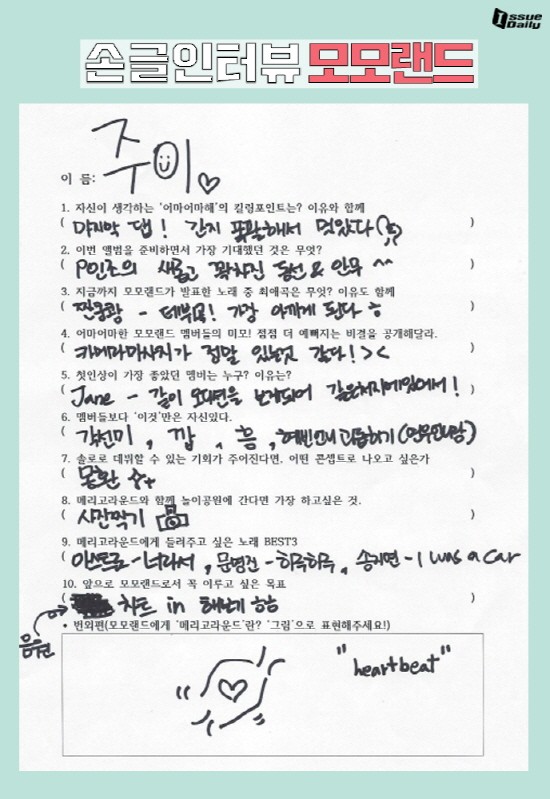 Issue Daily
손글인터뷰 모모랜드
이 름: 주이♡
1. 자신이 생각하는 '어마어마해'의 킬링포인트는? 이유와 함께
( 마지막 댑! 간지 폭발해서 멋있다 )
2. 이번 앨범을 준비하면서 가장 기대했던 것은 무엇?
( 9인조의 새롭고 꽉차진 동선 & 안무 ^^ )
3. 지금까지 모모랜드가 발표한 노래 중 최애곡은 무엇? 이유도 함께
( 짠쿵쾅 - 데뷔곡! 가장 아끼게 된다 ㅎ )
4. 어마어마한 모모랜드 멤버들의 미모! 점점 더 예뻐지는 비결을 공개해달라.
( 카메라마사지가 정말 있는것 같다! >< )
5. 첫인상이 가장 좋았던 멤버는 누구? 이유는?
( Jane - 같이 오디션을 보게되어 같은처지에있어서! )
6. 멤버들보다 '이것'만은 자신있다.
( 각선미, 깝, 흥, 혜빈언니 괴롭히기 )
7. 솔로로 데뷔할 수 있는 기회가 주어진다면, 어떤 콘셉트로 나오고 싶은가
( 몽환 )
8. 메리고라운드와 함께 놀이공원에 간다면 가장 하고싶은 것.
( 사진찍기 )
9. 메리고라운드에게 들려주고 싶은 노래 BEST3
( 아스트로 - 너라서, 문명진 - 하루하루, 송지연 - I was a car
10. 앞으로 모모랜드로서 꼭 이루고 싶은 목표
( 음원 차트 in 해보게 함 )
• 번외편(모모랜드에게 '메리고라운드'란? '그림'으로 표현해주세요!)
"heartbeat"